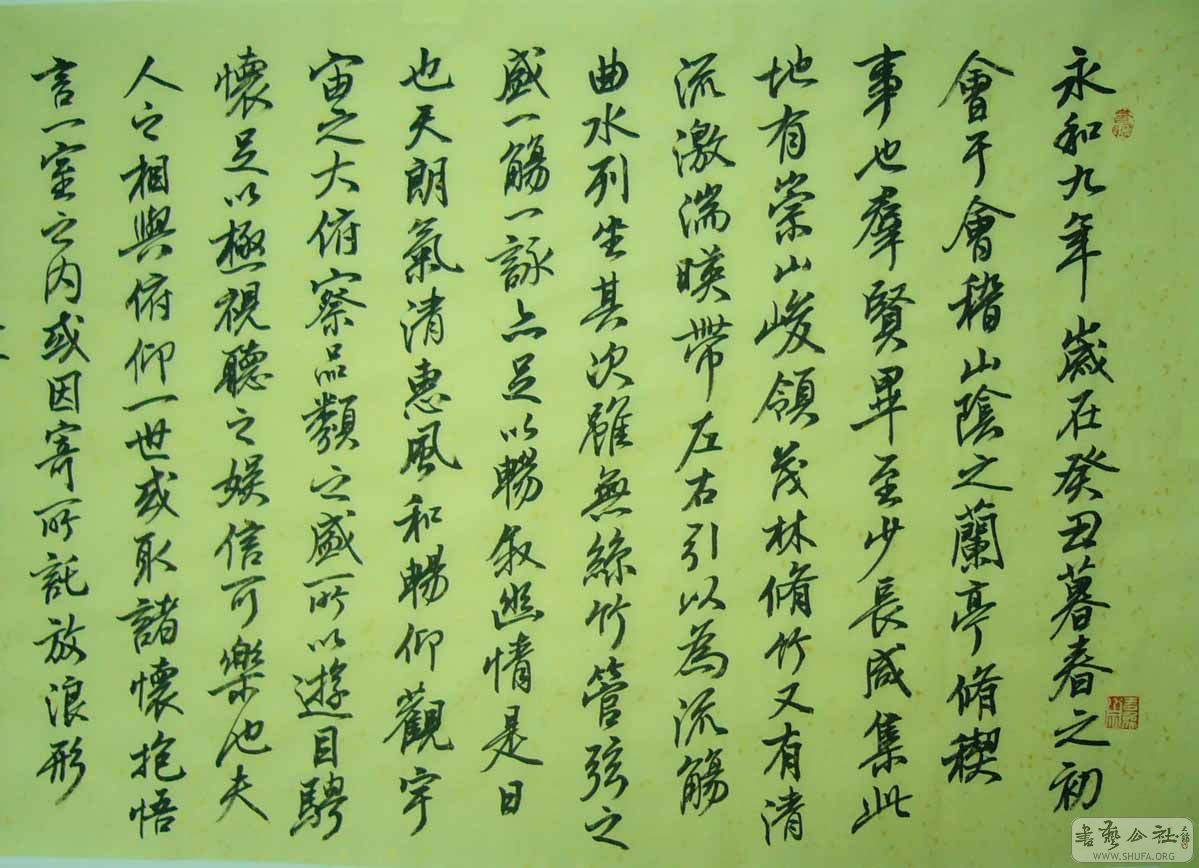 永和九年歲在癸丑暮春之初
會于會稽山陰之蘭亭脩稧
事也羣賢畢至少長咸集此
地有崇山峻領茂林脩竹又有清
流激湍暎帶左右引以為流觴
曲水列坐其次雖無絲竹管弦之
盛一觴一詠亦足以暢叙幽情是日
也天朗氣清惠風和暢仰觀宇
宙之大俯察品類之盛所以遊目騁
懷足以極視聽之娛信可樂也夫
人之相與俯仰一世或取諸懷抱悟
言一室之內或因寄所託放浪形
書藝公社
WWW.SHUFA.ORG